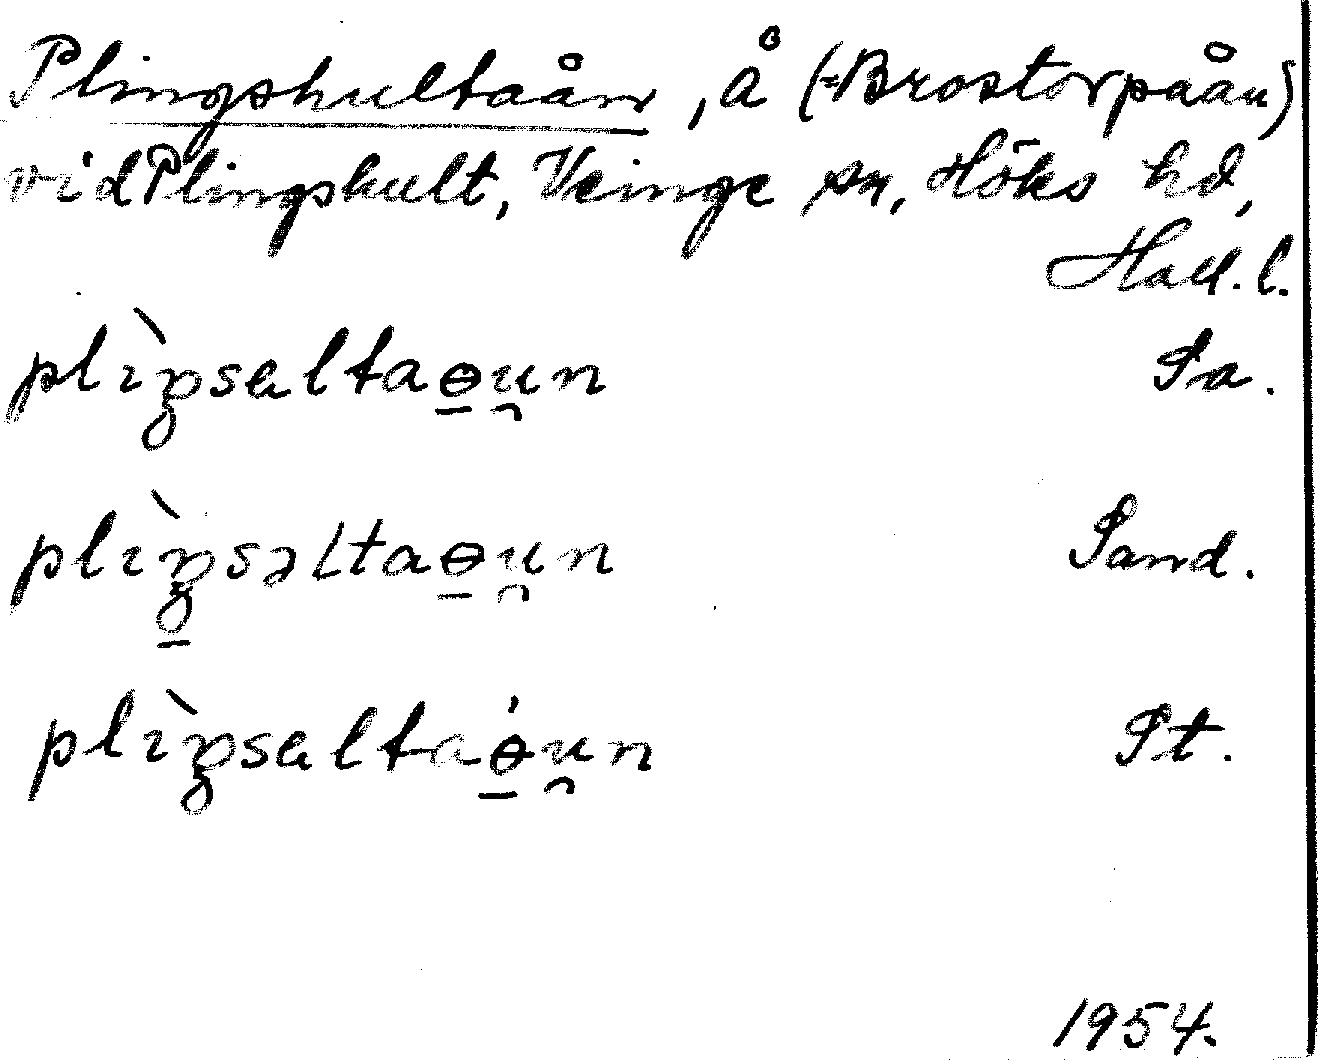 Plingshultaån, å (=Brostorpaån)
vid Plingshult, Veinge sn, Höks hd,
Hall. l.
plìŋsaltaɵu̯n Pa.
plìŋsəltaɵu̯n Sand.
plìŋsaltaɵ́u̯n Pt.
1954.